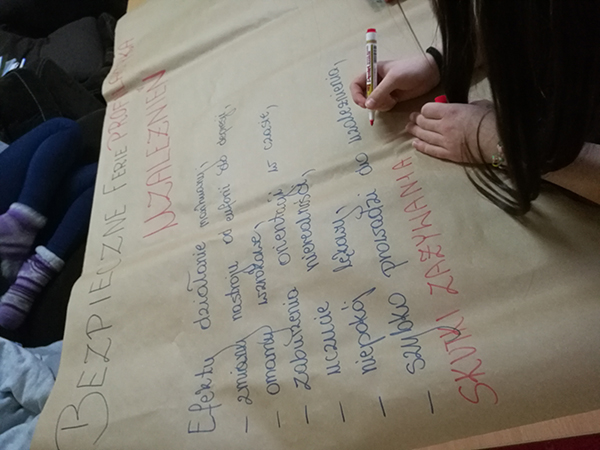 BEZPIECZNE FERIE PROFILAKTYKA
UZALEŻNIEŃ
Efekty działanie marihuany,
- zmiany nastroju od euforii do depresji,
- omamy wzrokowe,
- zaburzenia orientacji w czasie,
- uczucie nierealności,
- niepokój, lękawy,
- szybko prowadzi do uzależnienia,
SKUTKI ZAŻYWANIA